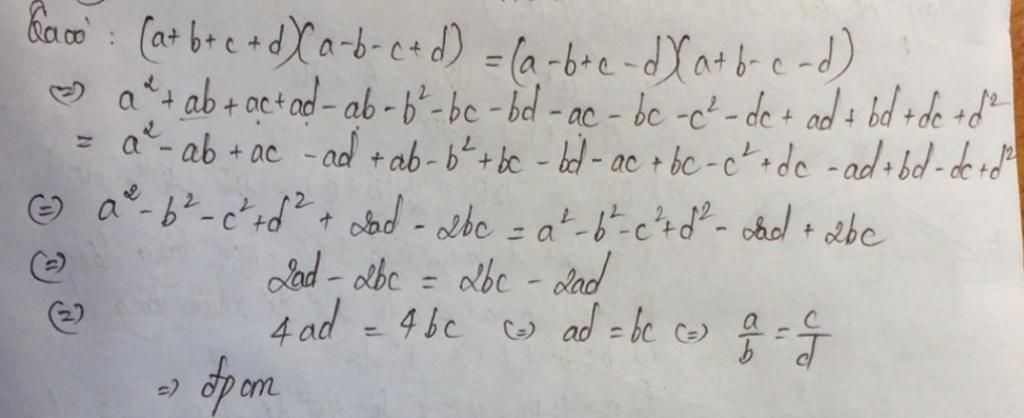 Ta có : (a+b+c+d)(a-b-c+d) = (a-b+c-d)(a+b-c-d)
<=> a² + ab + ac + ad - ab - b² - bc - bd - ac - bc - c² - dc + ad + bd + dc + d²
= a² - ab + ac - ad + ab - b² + bc - bd - ac + bc - c² + dc - ad + bd - dc + d²
(=) a² - b² - c² + d² + 2ad - 2bc = a² - b² - c² + d² - 2ad + 2bc
(=) 2ad - 2bc = 2bc - 2ad
(=) 4ad = 4bc (=) ad = bc (=) a/b = c/d
=> đpcm